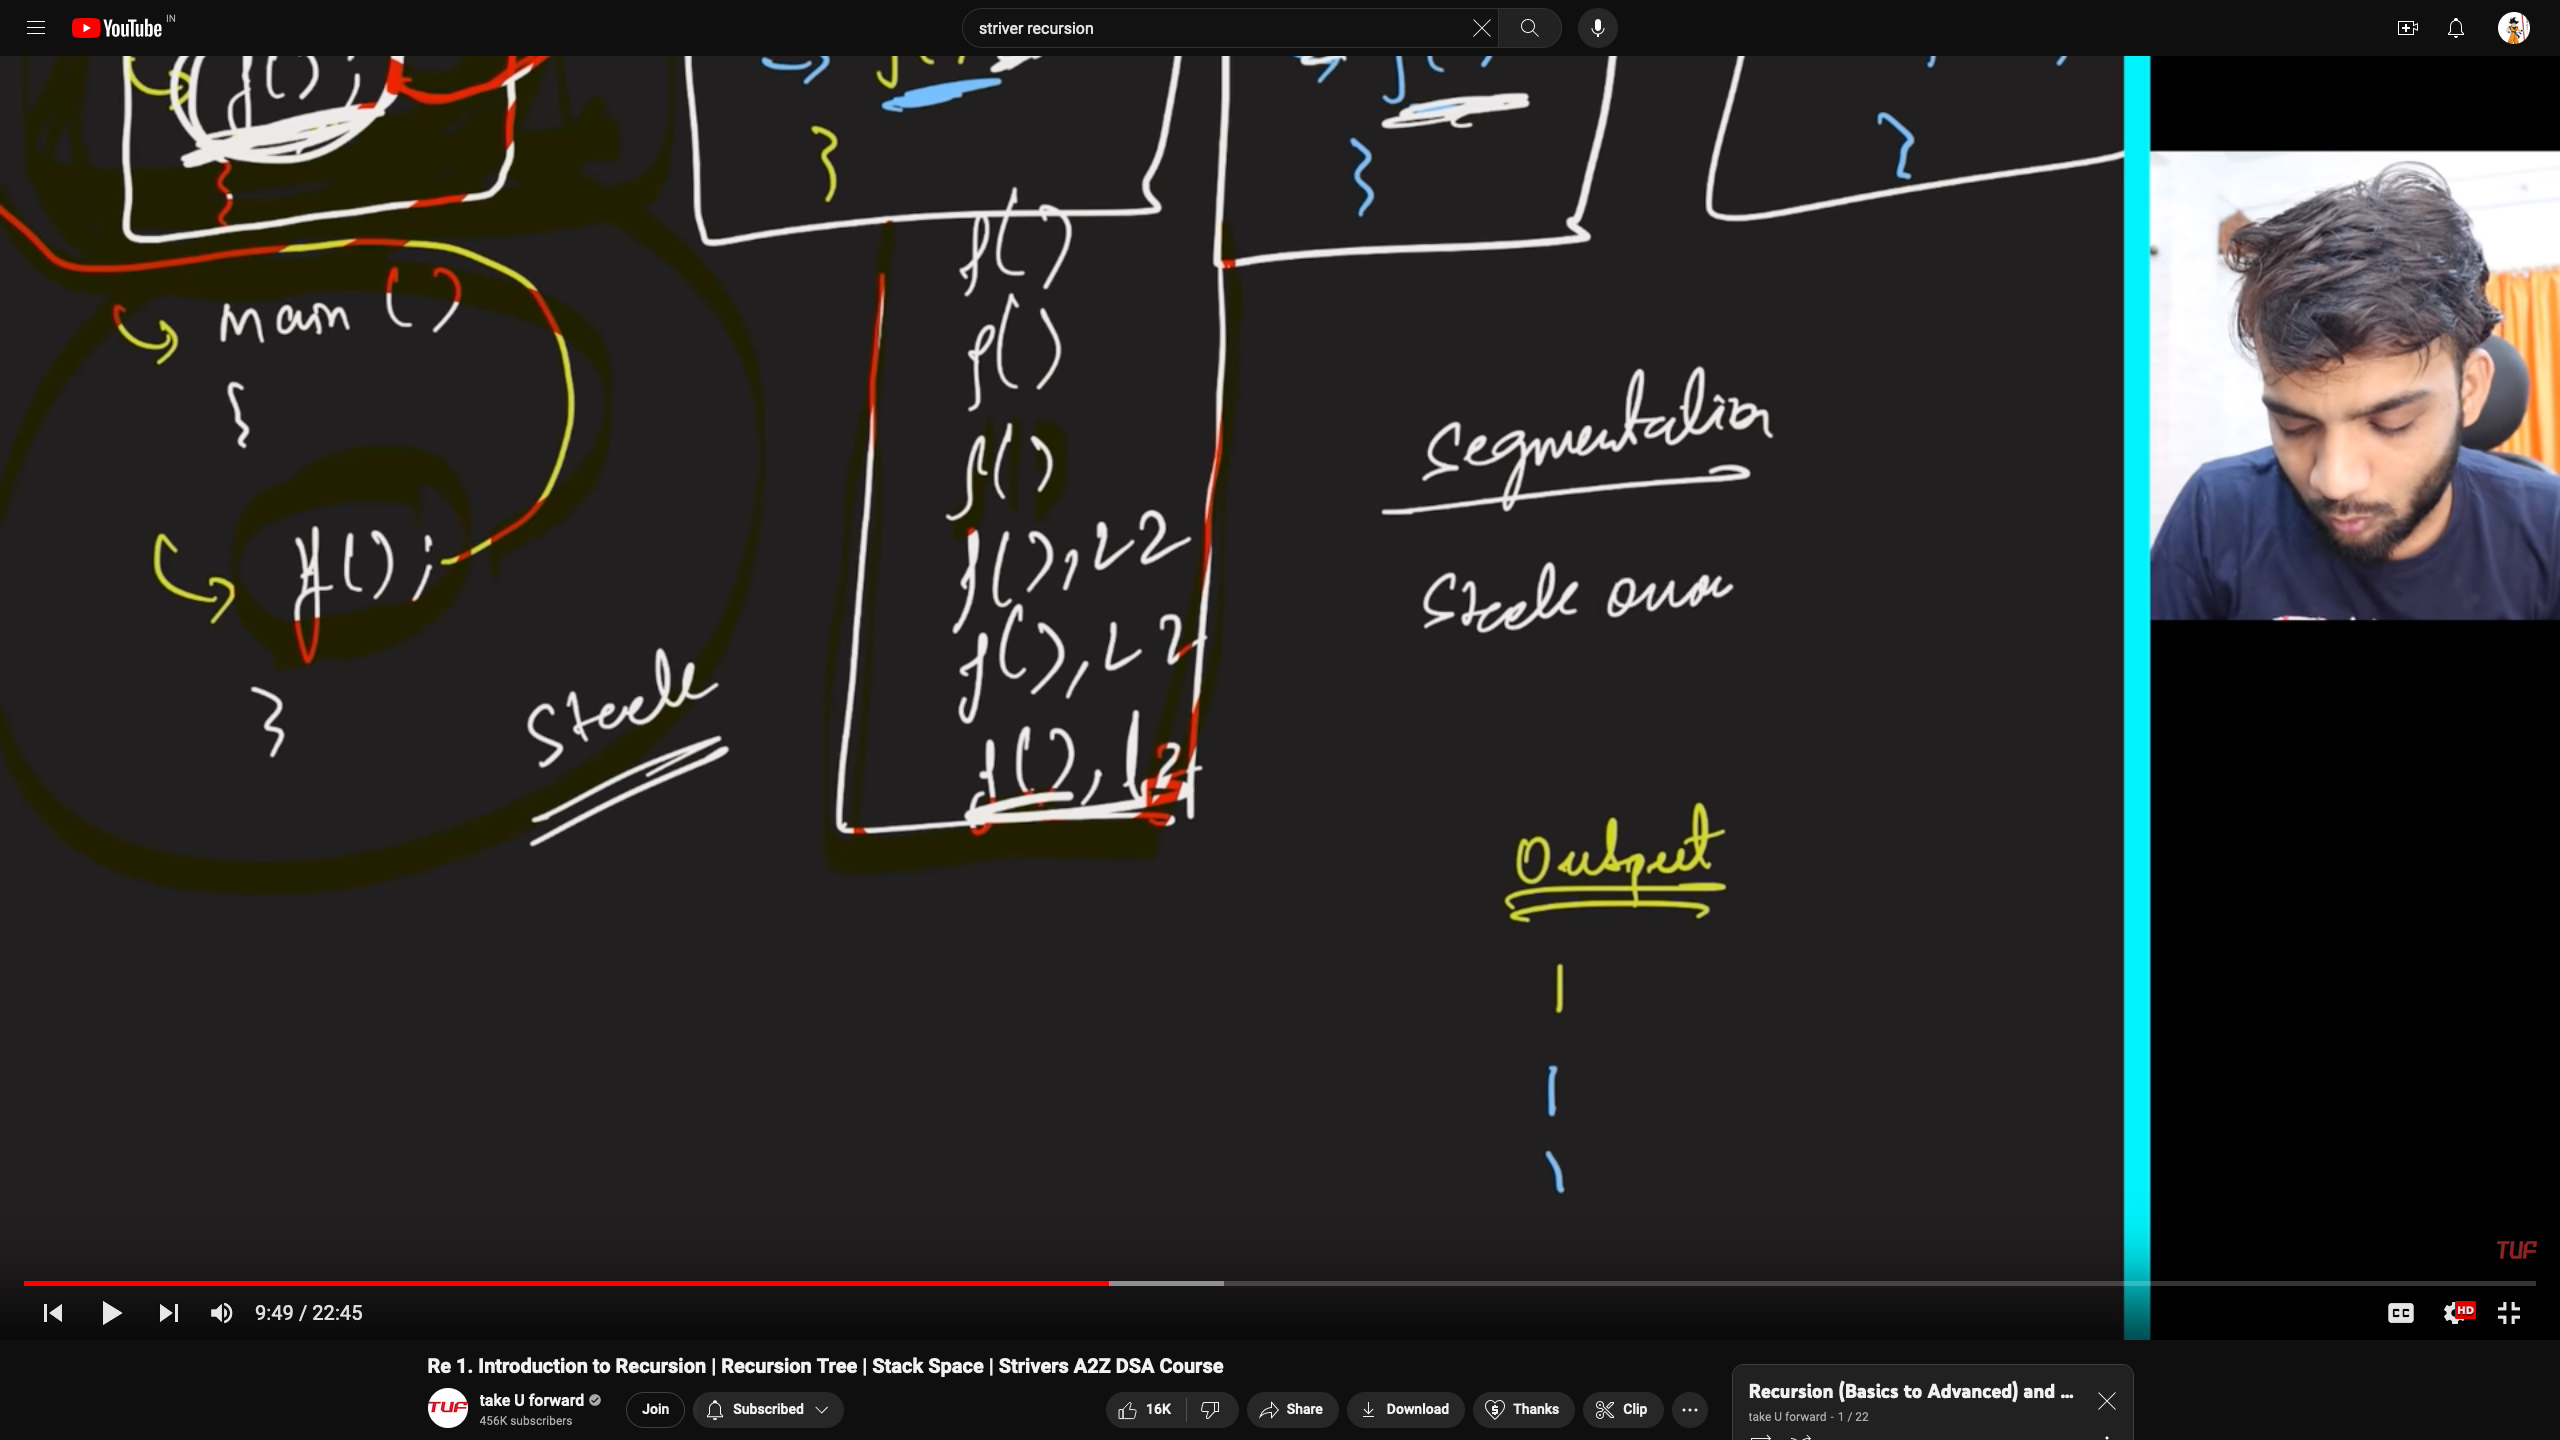 IN
YouTube
striver recursion
f();
}
}
}
f()
main ()
f()
{
Segmentation
f()
f();
f(), L2
Stack
f(), L2
}
Stack
f(), L2
Output
1
1
1
TUF
9:49 / 22:45
CC
HD
Re 1. Introduction to Recursion | Recursion Tree | Stack Space | Strivers A2Z DSA Course
TUF
take U forward
456K subscribers
Join
Subscribed
16K
Share
Download
Thanks
Clip
Recursion (Basics to Advanced) and ...
take U forward - 1 / 22